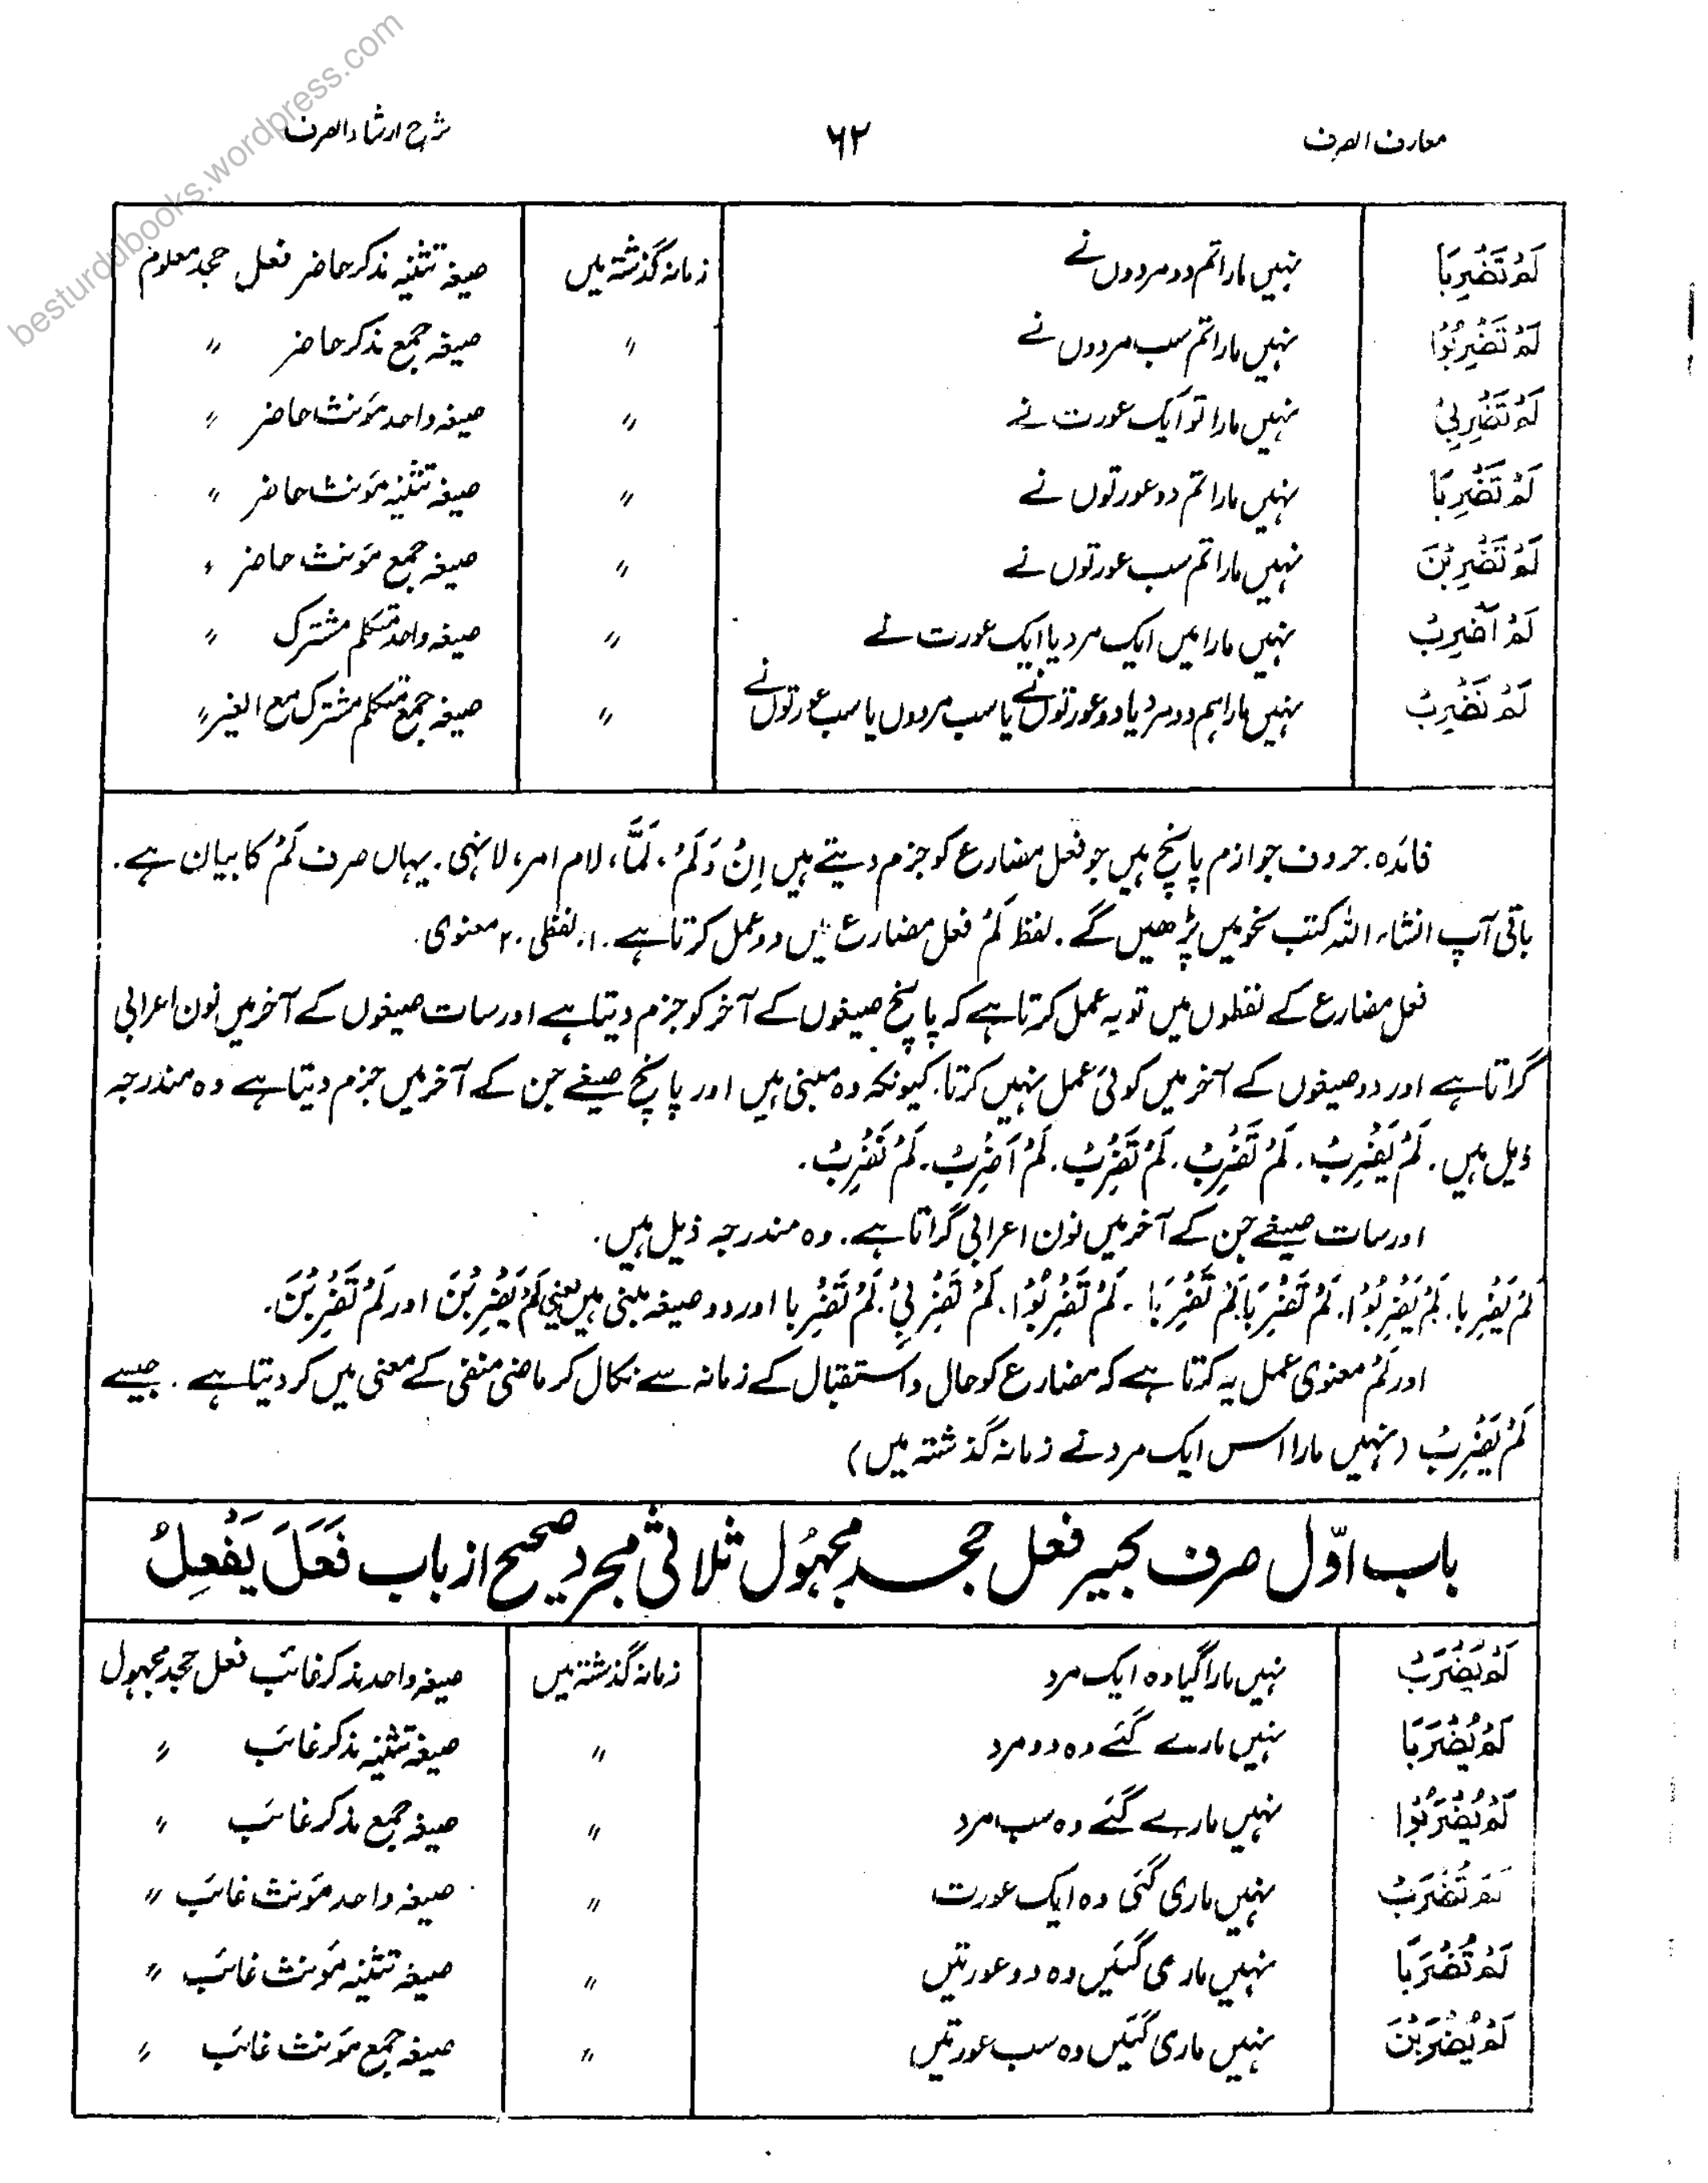 besturdubooks.wordpress.com
معارف الصرف ۶۲ شرح ارشاد الصرف
لَمْ تَضْرِبَا نہیں مارا تم دو مردوں نے زمانہ گذشتہ میں صیغہ تثنیہ مذکر حاضر فعل جحد معلوم
لَمْ تَضْرِبُوْا نہیں مارا تم سب مردوں نے 〃 صیغہ جمع مذکر حاضر 〃
لَمْ تَضْرِبِیْ نہیں مارا تو ایک عورت نے 〃 صیغہ واحد مؤنث حاضر 〃
لَمْ تَضْرِبَا نہیں مارا تم دو عورتوں نے 〃 صیغہ تثنیہ مؤنث حاضر 〃
لَمْ تَضْرِبْنَ نہیں مارا تم سب عورتوں نے 〃 صیغہ جمع مؤنث حاضر 〃
لَمْ اَضْرِبْ نہیں مارا میں ایک مرد یا ایک عورت نے 〃 صیغہ واحد متکلم مشترک 〃
لَمْ نَضْرِبْ نہیں مارا ہم دو مرد یا دو عورتوں نے یا سب مردوں یا سب عورتوں نے 〃 صیغہ جمع متکلم مشترک مع الغیر 〃
فائدہ۔ حروف جوازم پانچ ہیں جو فعل مضارع کو جزم دیتے ہیں اِنْ وَلَمْ، لَمَّا، لام امر، لا نہی۔ یہاں صرف لَمْ کا بیان ہے۔
باقی آپ انشاء اللہ کتب نحو میں پڑھیں گے۔ لفظ لَمْ فعل مضارع میں دو عمل کرتا ہے۔ ۱۔ لفظی ۲۔ معنوی۔
فعل مضارع کے لفظوں میں تو یہ عمل کرتا ہے کہ پانچ صیغوں کے آخر کو جزم دیتا ہے اور سات صیغوں کے آخر میں نون اعرابی
گراتا ہے اور دو صیغوں کے آخر میں کوئی عمل نہیں کرتا۔ کیونکہ وہ مبنی ہیں اور پانچ صیغے جن کے آخر میں جزم دیتا ہے وہ مندرجہ
ذیل ہیں۔ لَمْ یَضْرِبْ۔ لَمْ تَضْرِبْ۔ لَمْ تَضْرِبْ۔ لَمْ اَضْرِبْ۔ لَمْ نَضْرِبْ۔
اور سات صیغے جن کے آخر میں نون اعرابی گراتا ہے۔ وہ مندرجہ ذیل ہیں۔
لَمْ یَضْرِبا۔ لَمْ یَضْرِبُوْا۔ لَمْ تَضْرِبَا لَمْ تَضْرِبَا۔ لَمْ تَضْرِبُوْا۔ لَمْ تَضْرِبِیْ۔ لَمْ تَضْرِبا اور دو صیغہ مبنی ہیں یعنی لَمْ یَضْرِبْنَ اور لَمْ تَضْرِبْنَ۔
اور لَمْ معنوی عمل یہ کرتا ہے کہ مضارع کو حال و استقبال کے زمانہ سے نکال کر ماضی منفی کے معنی میں کر دیتا ہے۔ جیسے
لَمْ یَضْرِبْ (نہیں مارا اس ایک مرد نے زمانہ گذشتہ میں)
باب اوّل صرف کبیر فعل جحد مجہُول ثلاثی مجرد صحیح از باب فَعَلَ یَفْعِلُ
لَمْ یُضْرَبْ نہیں مارا گیا وہ ایک مرد زمانہ گذشتہ میں صیغہ واحد مذکر غائب فعل جحد مجہول
لَمْ یُضْرَبَا نہیں مارے گئے وہ دو مرد 〃 صیغہ تثنیہ مذکر غائب 〃
لَمْ یُضْرَبُوْا نہیں مارے گئے وہ سب مرد 〃 صیغہ جمع مذکر غائب 〃
لَمْ تُضْرَبْ نہیں ماری گئی وہ ایک عورت 〃 صیغہ واحد مؤنث غائب 〃
لَمْ تُضْرَبَا نہیں ماری گئیں وہ دو عورتیں 〃 صیغہ تثنیہ مؤنث غائب 〃
لَمْ یُضْرَبْنَ نہیں ماری گئیں وہ سب عورتیں 〃 صیغہ جمع مؤنث غائب 〃